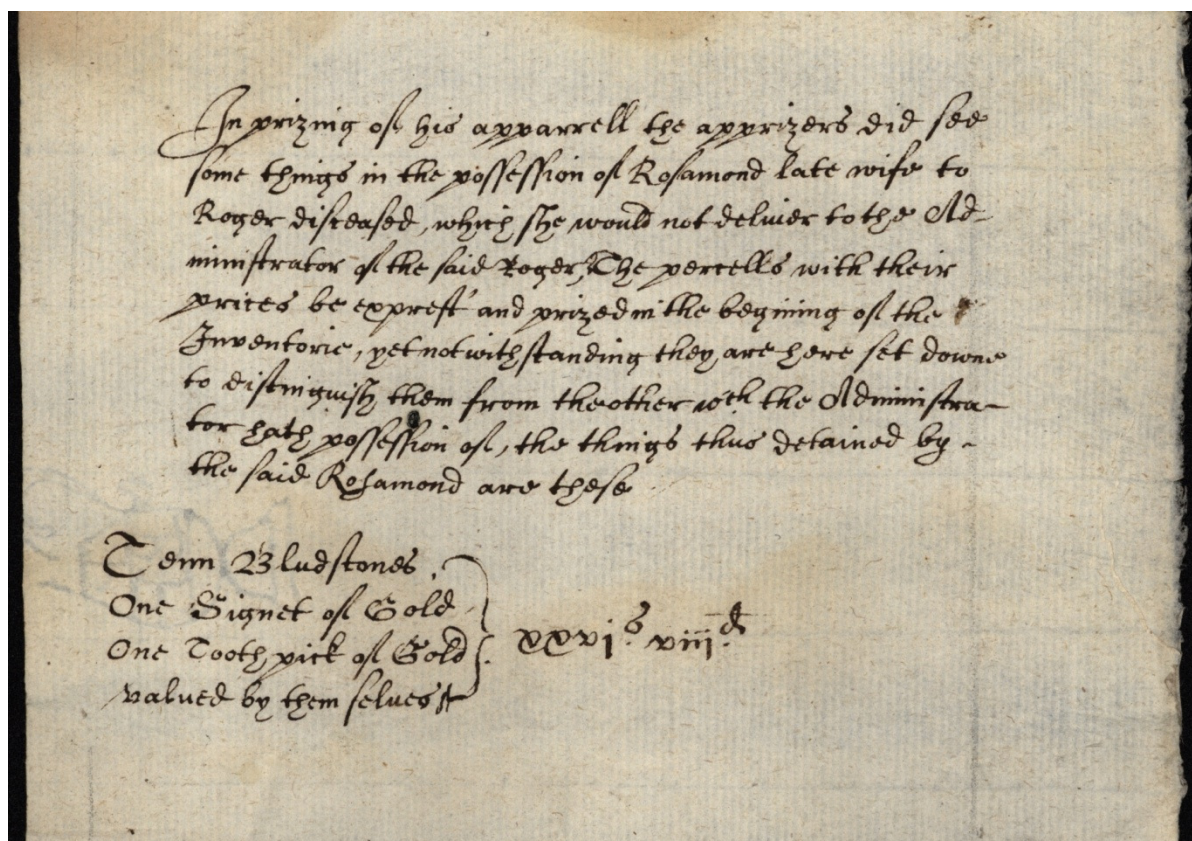 In prizing of his apparrell the apprizers did see
some things in the possession of Rosamond late wife to
Roger diseased, which she would not deliuer to the Ad-
ministrator of the said Roger, The percells with their
prices be exprest and prized in the begining of the
Inventorie, yet notwithstanding they are here set downe
to distinguish them from the other wch the Administra-
tor hath possession of, the things thus detained by -
the said Rosamond are these
Tenn Bludstones
One Signet of Gold
One Tooth pick of Gold
valued by them selves
xxvjs. viijd.